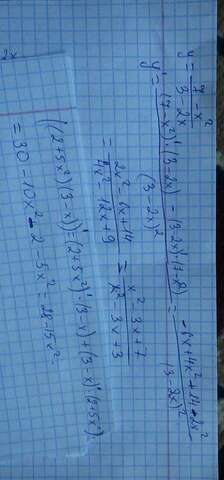 y = (7 - x²)/(3 - 2x)
y' = ((7-x²)'·(3-2x) - (3-2x)'·(7-x²))/(3-2x)² = (-6x+4x²+14-2x²)/(3-2x)²
= (2x²-6x+14)/(4x²-12x+9) = (x²-3x+7)/(x²-3x+3)
((2+5x²)(3-x))' = (2+5x²)'·(3-x)+(3-x)'(2+5x²)
= 30-10x²-2-5x² = 28-15x²